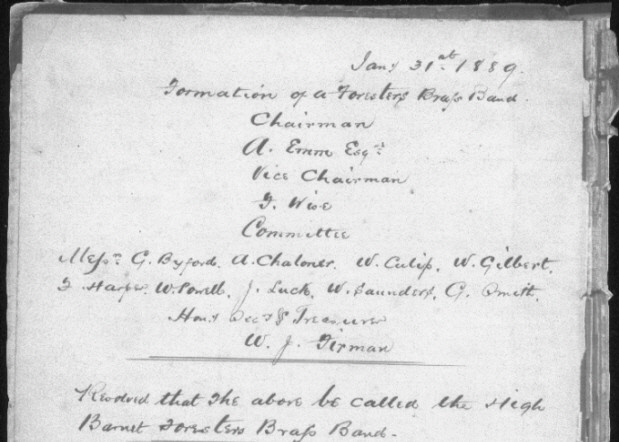 Jany 31st 1889.
Formation of a Foresters Brass Band.
Chairman
A. Emm Esqr
Vice Chairman
F. Wise
Committee
Messrs G. Byford. A. Chaloner. W. Culip. W. Gilbert.
F Harper. W. Powell. J. Luck. W. Saunders. G. Smith.
Hony Secy & Treasurer
W. J. Firman
Resolved that the above be called the High
Barnet Foresters Brass Band.